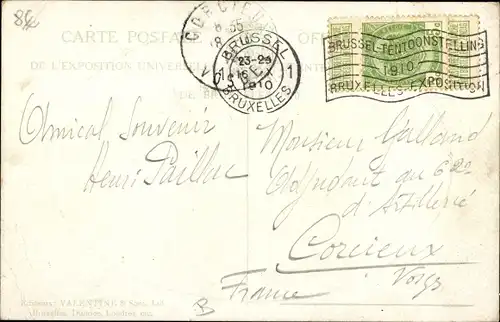 86
CARTE POSTALE OF
DE L'EXPOSITION UNIVERSELLE
DE BRUXELLES
CORCIEUX
BRUSSEL
23-24
1 1
1910
BRUXELLES
BRUSSEL-TENTOONSTELLING
1910
BRUXELLES-EXPOSITION
Amical Souvenir
Henri Paillac
Monsieur Galland
Adjudant au 62e
d'Artillerie
Corcieux
Vosges
France
B
Editeurs: VALENTINE & Sons, Ltd.
Bruxelles, Dundee, Londres, etc.